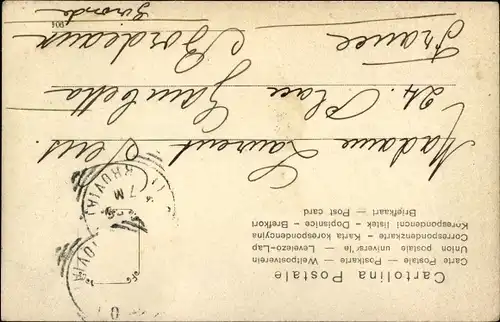 Cartolina Postale
Carte Postale — Postkarte — Weltpostverein
Union postale universelle — Levelezo-Lap
Correspondenzkarte - Karta korespondencyjna
Korespondencni listek - Dopisnice - Brefkort
Briefkaart — Post card
Madame Laurent
24. Place Gambetta
Bordeaux
Gironde
France
004